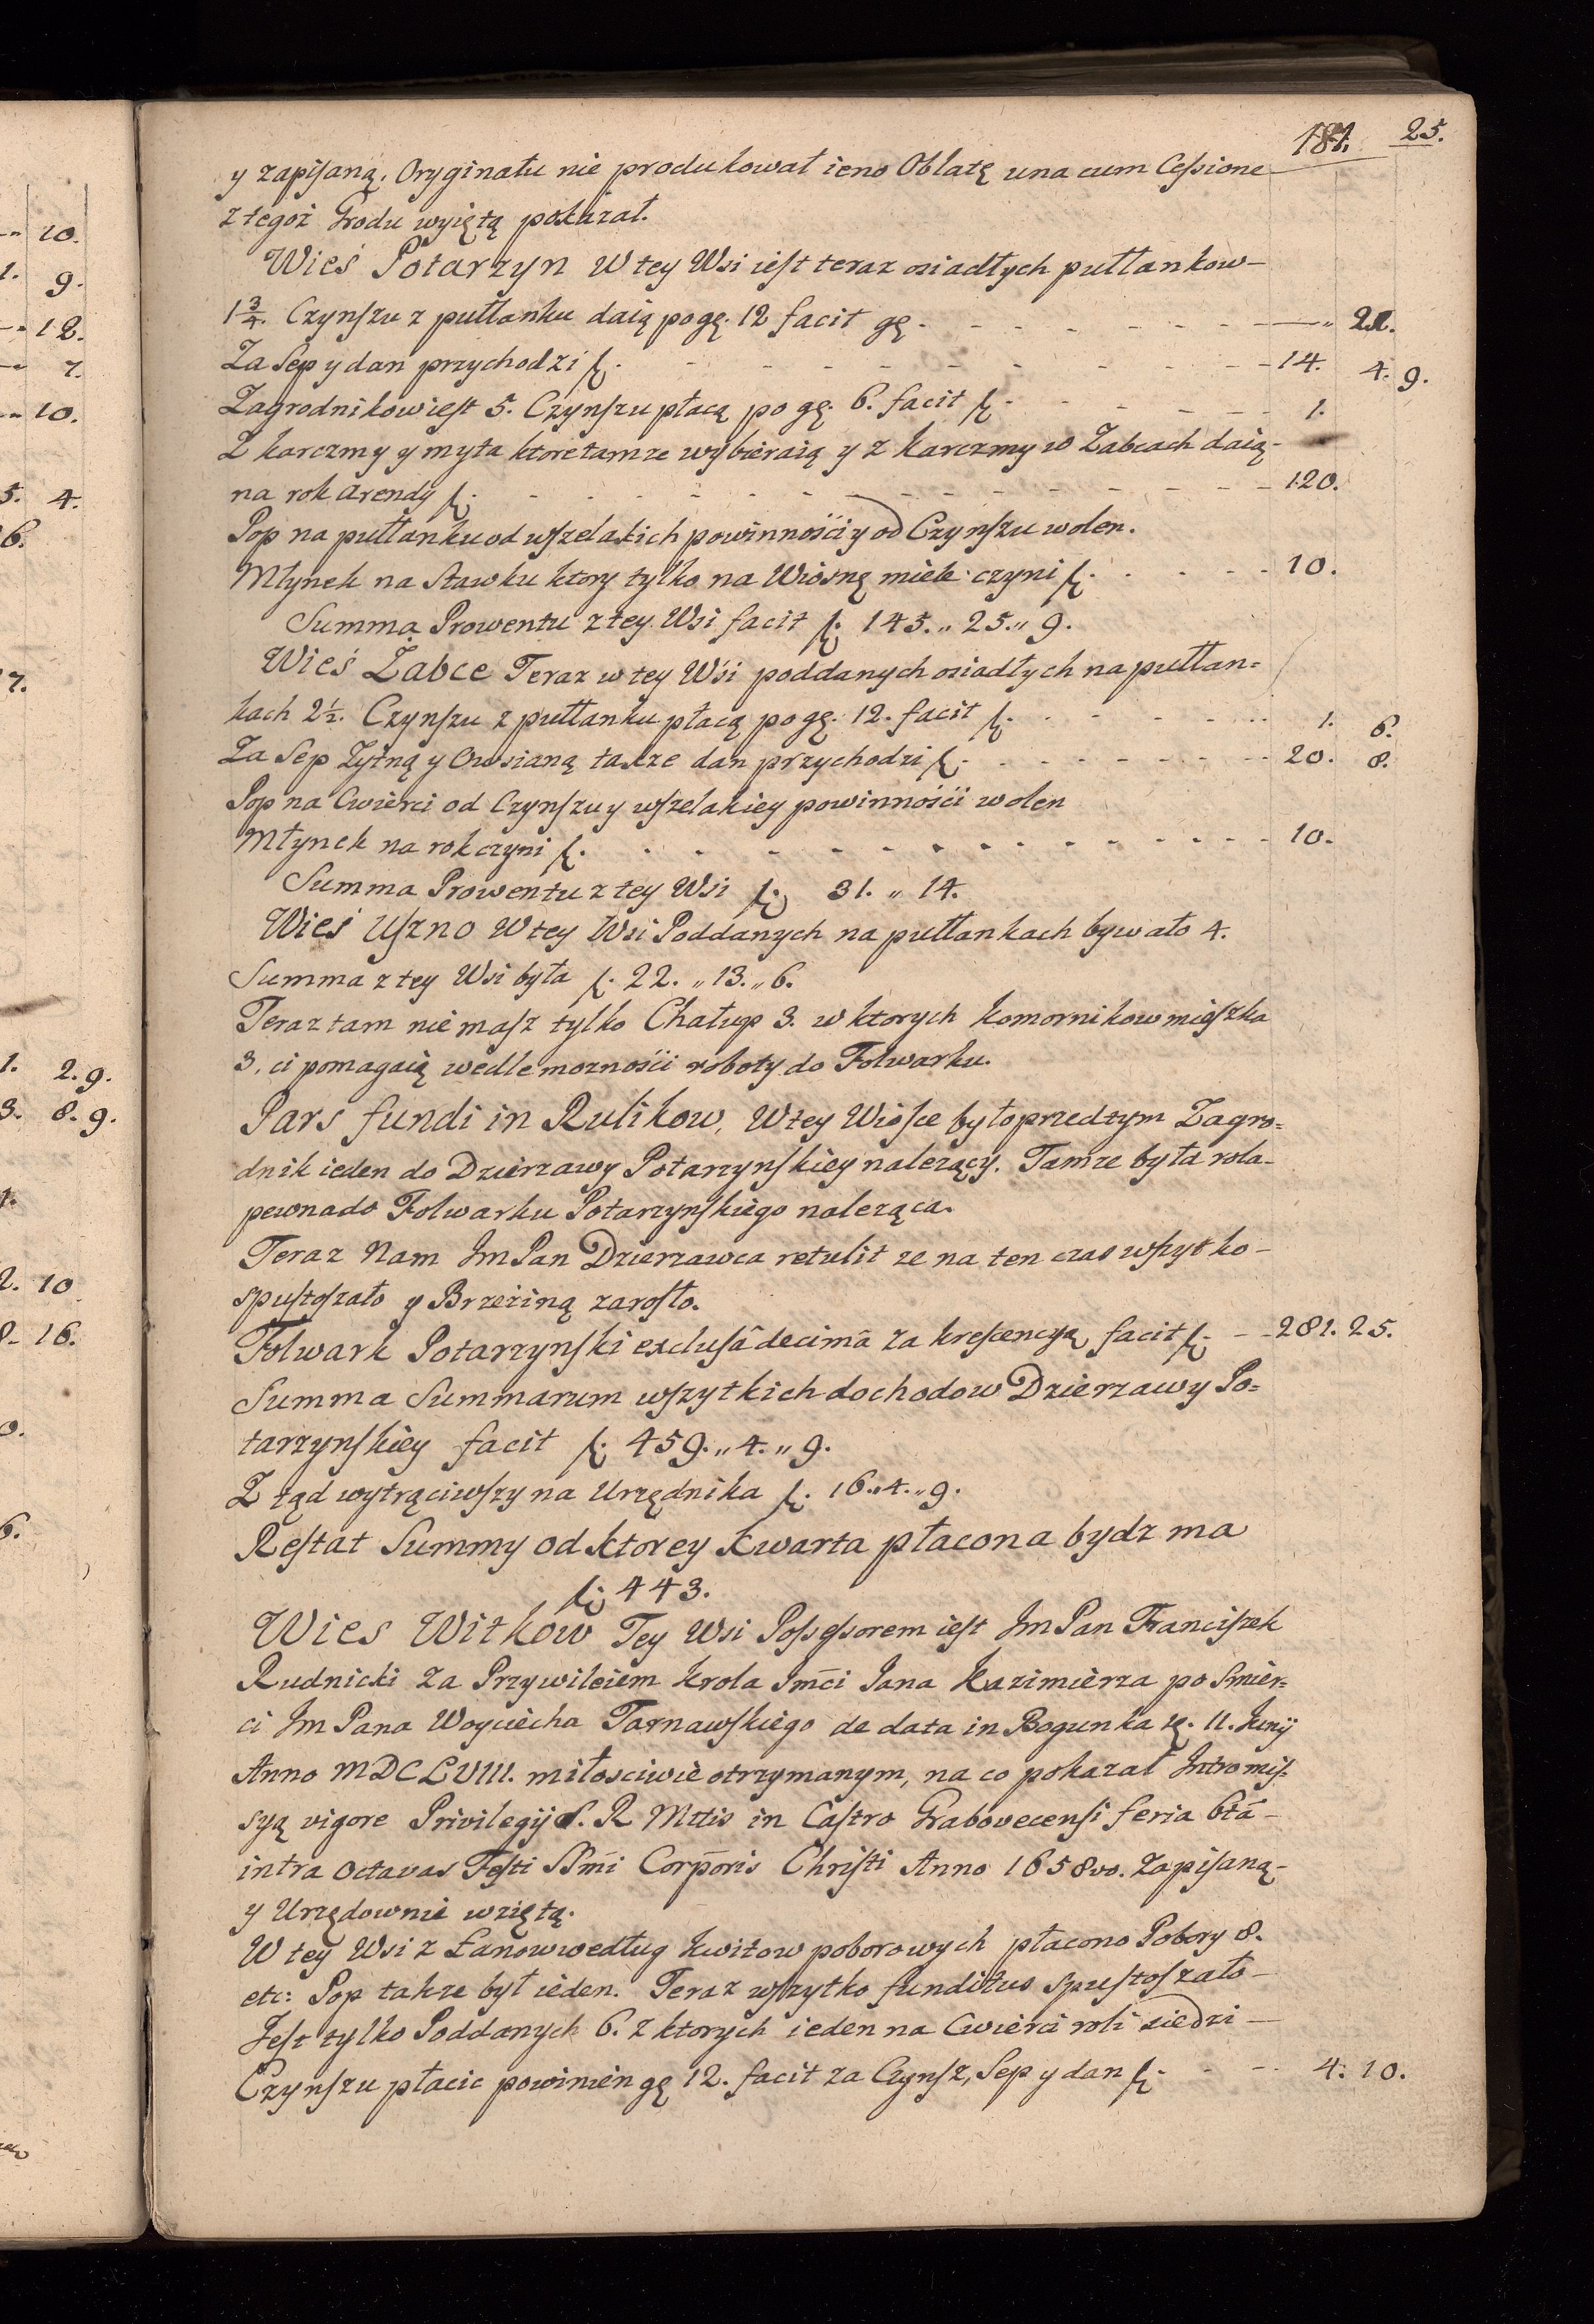 181. 25.
y zapisaną. Oryginału nie produkował ieno Oblatę una cum Cessione
z tegoż Grodu wyiętą pokazał.
Wieś Potarzyn W tey Wsi iest teraz osiadłych pułłankow
1 3/4. Czynszu z pułłanku daią po gę. 12 facit gę. — „ 21.
Za Sep y dan przychodzi f. 14. 4. 9.
Zagrodnikow iest 5. Czynszu płacą po gę. 6. facit f. 1.
Z karczmy y myta ktore tamze wybieraią y z karczmy w Zabcach daią
na rok arendy f. 120.
Pop na pułłanku od wszelakich powinnośći y od Czynszu wolen.
Młynek na Stawku ktory tylko na Wiosnę miele czyni f. 10.
Summa Prowentu z tey Wsi facit f. 145. „ 25. „ 9.
Wieś Żabce Teraz w tey Wśi poddanych osiadłych na pułłan=
kach 2 1/2. Czynszu z pułłanku płacą po gę. 12. facit f. 1. 6.
Za Sep Żytną y Owsianą takze dan przychodzi f. 20. 8.
Pop na Cwierci od Czynszu y wszelakiey powinnośći wolen
Młynek na rok czyni f. 10.
Summa Prowentu z tey Wsi f. 31. „ 14.
Wieś Uszno W tey Wsi Poddanych na pułłankach bywało 4.
Summa z tey Wsi była f. 22. „ 13. „ 6.
Teraz tam nie masz tylko Chałup 3. w ktorych komornikow mieszka
3, ci pomagaią wedle moznośći roboty do Folwarku.
Pars fundi in Rulikow, W tey Wiosce było przedtym Zagro=
dnik ieden do Dzierzawy Potarzynskiey nalezący. Tamze była rola
pewna do Folwarku Potarzynskiego naleząca.
Teraz Nam Jm Pan Dzierzawca retulit ze na ten czas wszytko
spustoszało y Brzeziną zarosło.
Folwark Potarzynski exclusâ decimâ za krescencyą facit f. 281. 25.
Summa Summarum wszytkich dochodow Dzierzawy Po=
tarzynskiey facit f. 459. „ 4. „ 9.
Z tąd wytrąciwszy na Urzędnika f. 16. „ 4. „ 9.
Restat Summy od ktorey Kwarta płacona bydz ma
f. 443.
Wies Witkow Tey Wsi Possessorem iest Jm Pan Franciszek
Rudnicki za Przywileiem Krola Jmći Jana Kazimierza po Smier=
ci Jm Pana Woyciecha Tarnawskiego de data in Bogunka 11. Junij
Anno MDCLVIII. miłosciwie otrzymanym, na co pokazał Intromis=
syą vigore Privilegij S. R Mttis in Castro Grabovecensi feria 6tâ
intra Octavas Festi SSmi Corporis Christi Anno 1658vo. Zapisaną
y Urzędownie wziętą.
W tey Wsi z Łanow według kwitow poborowych płacono Pobory 8.
etc: Pop takze był ieden. Teraz wszytko funditus spustoszało
Jest tylko Poddanych 6. z ktorych ieden na Cwierci roli siedzi
Czynszu płacic powinien gę 12. facit za Czynsz, Sep y dan f. 4. 10.
10.
1. 9.
12.
7.
10.
5. 4.
6.
7.
1. 2. 9.
3. 8. 9.
2. 10
8. 16.
0.
6.